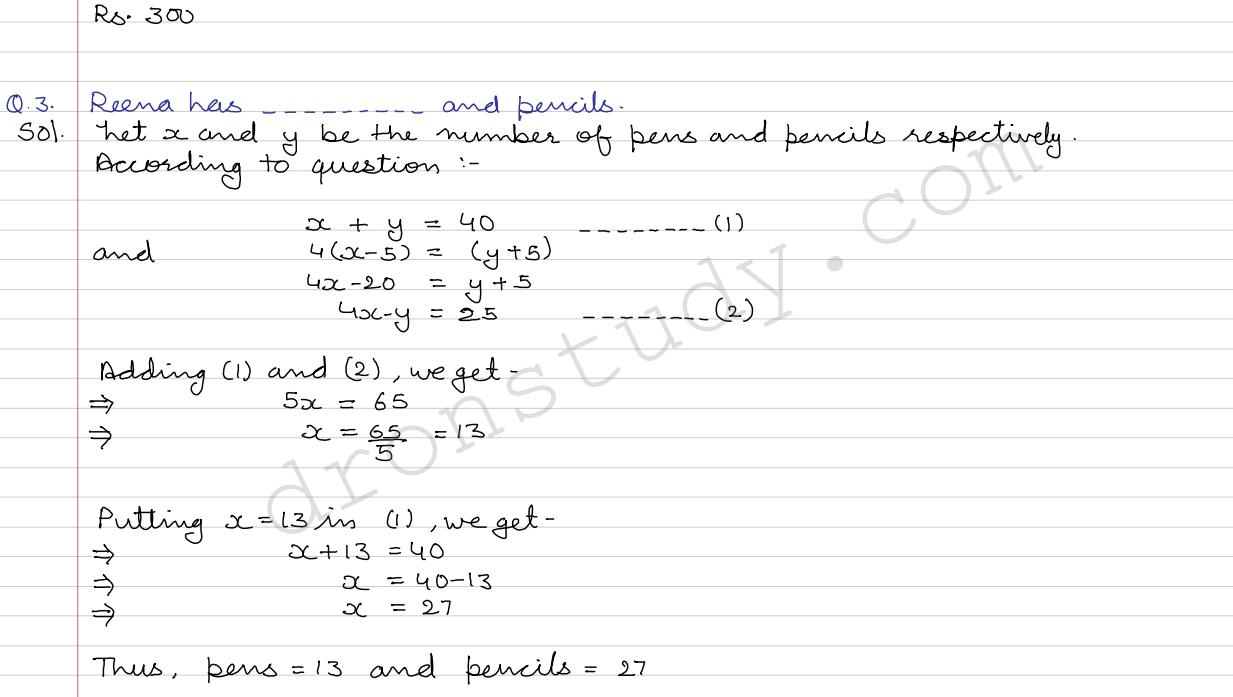 Rs. 300
Q.3. Reena has _ _ _ _ _ _ _ _ _ and pencils.
Sol. Let x and y be the number of pens and pencils respectively.
According to question :-
x + y = 40 _ _ _ _ _ _ _ _ (1)
and 4(x-5) = (y+5)
4x-20 = y+5
4x-y = 25 _ _ _ _ _ _ _ _ (2)
Adding (1) and (2), we get-
⇒ 5x = 65
⇒ x = 65/5 = 13
Putting x=13 in (1), we get-
⇒ x+13 = 40
⇒ x = 40-13
⇒ x = 27
Thus, pens = 13 and pencils = 27
dronstudy.com